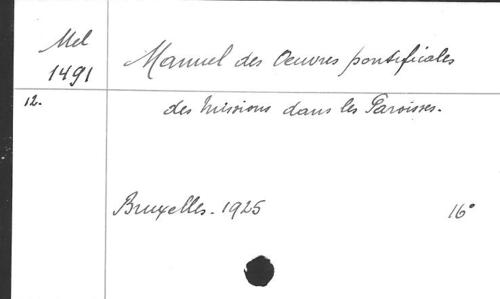 Mel
1491
Manuel des Oeuvres pontificales
12.
des Missions dans les Paroisses.
Bruxelles. 1925
16°